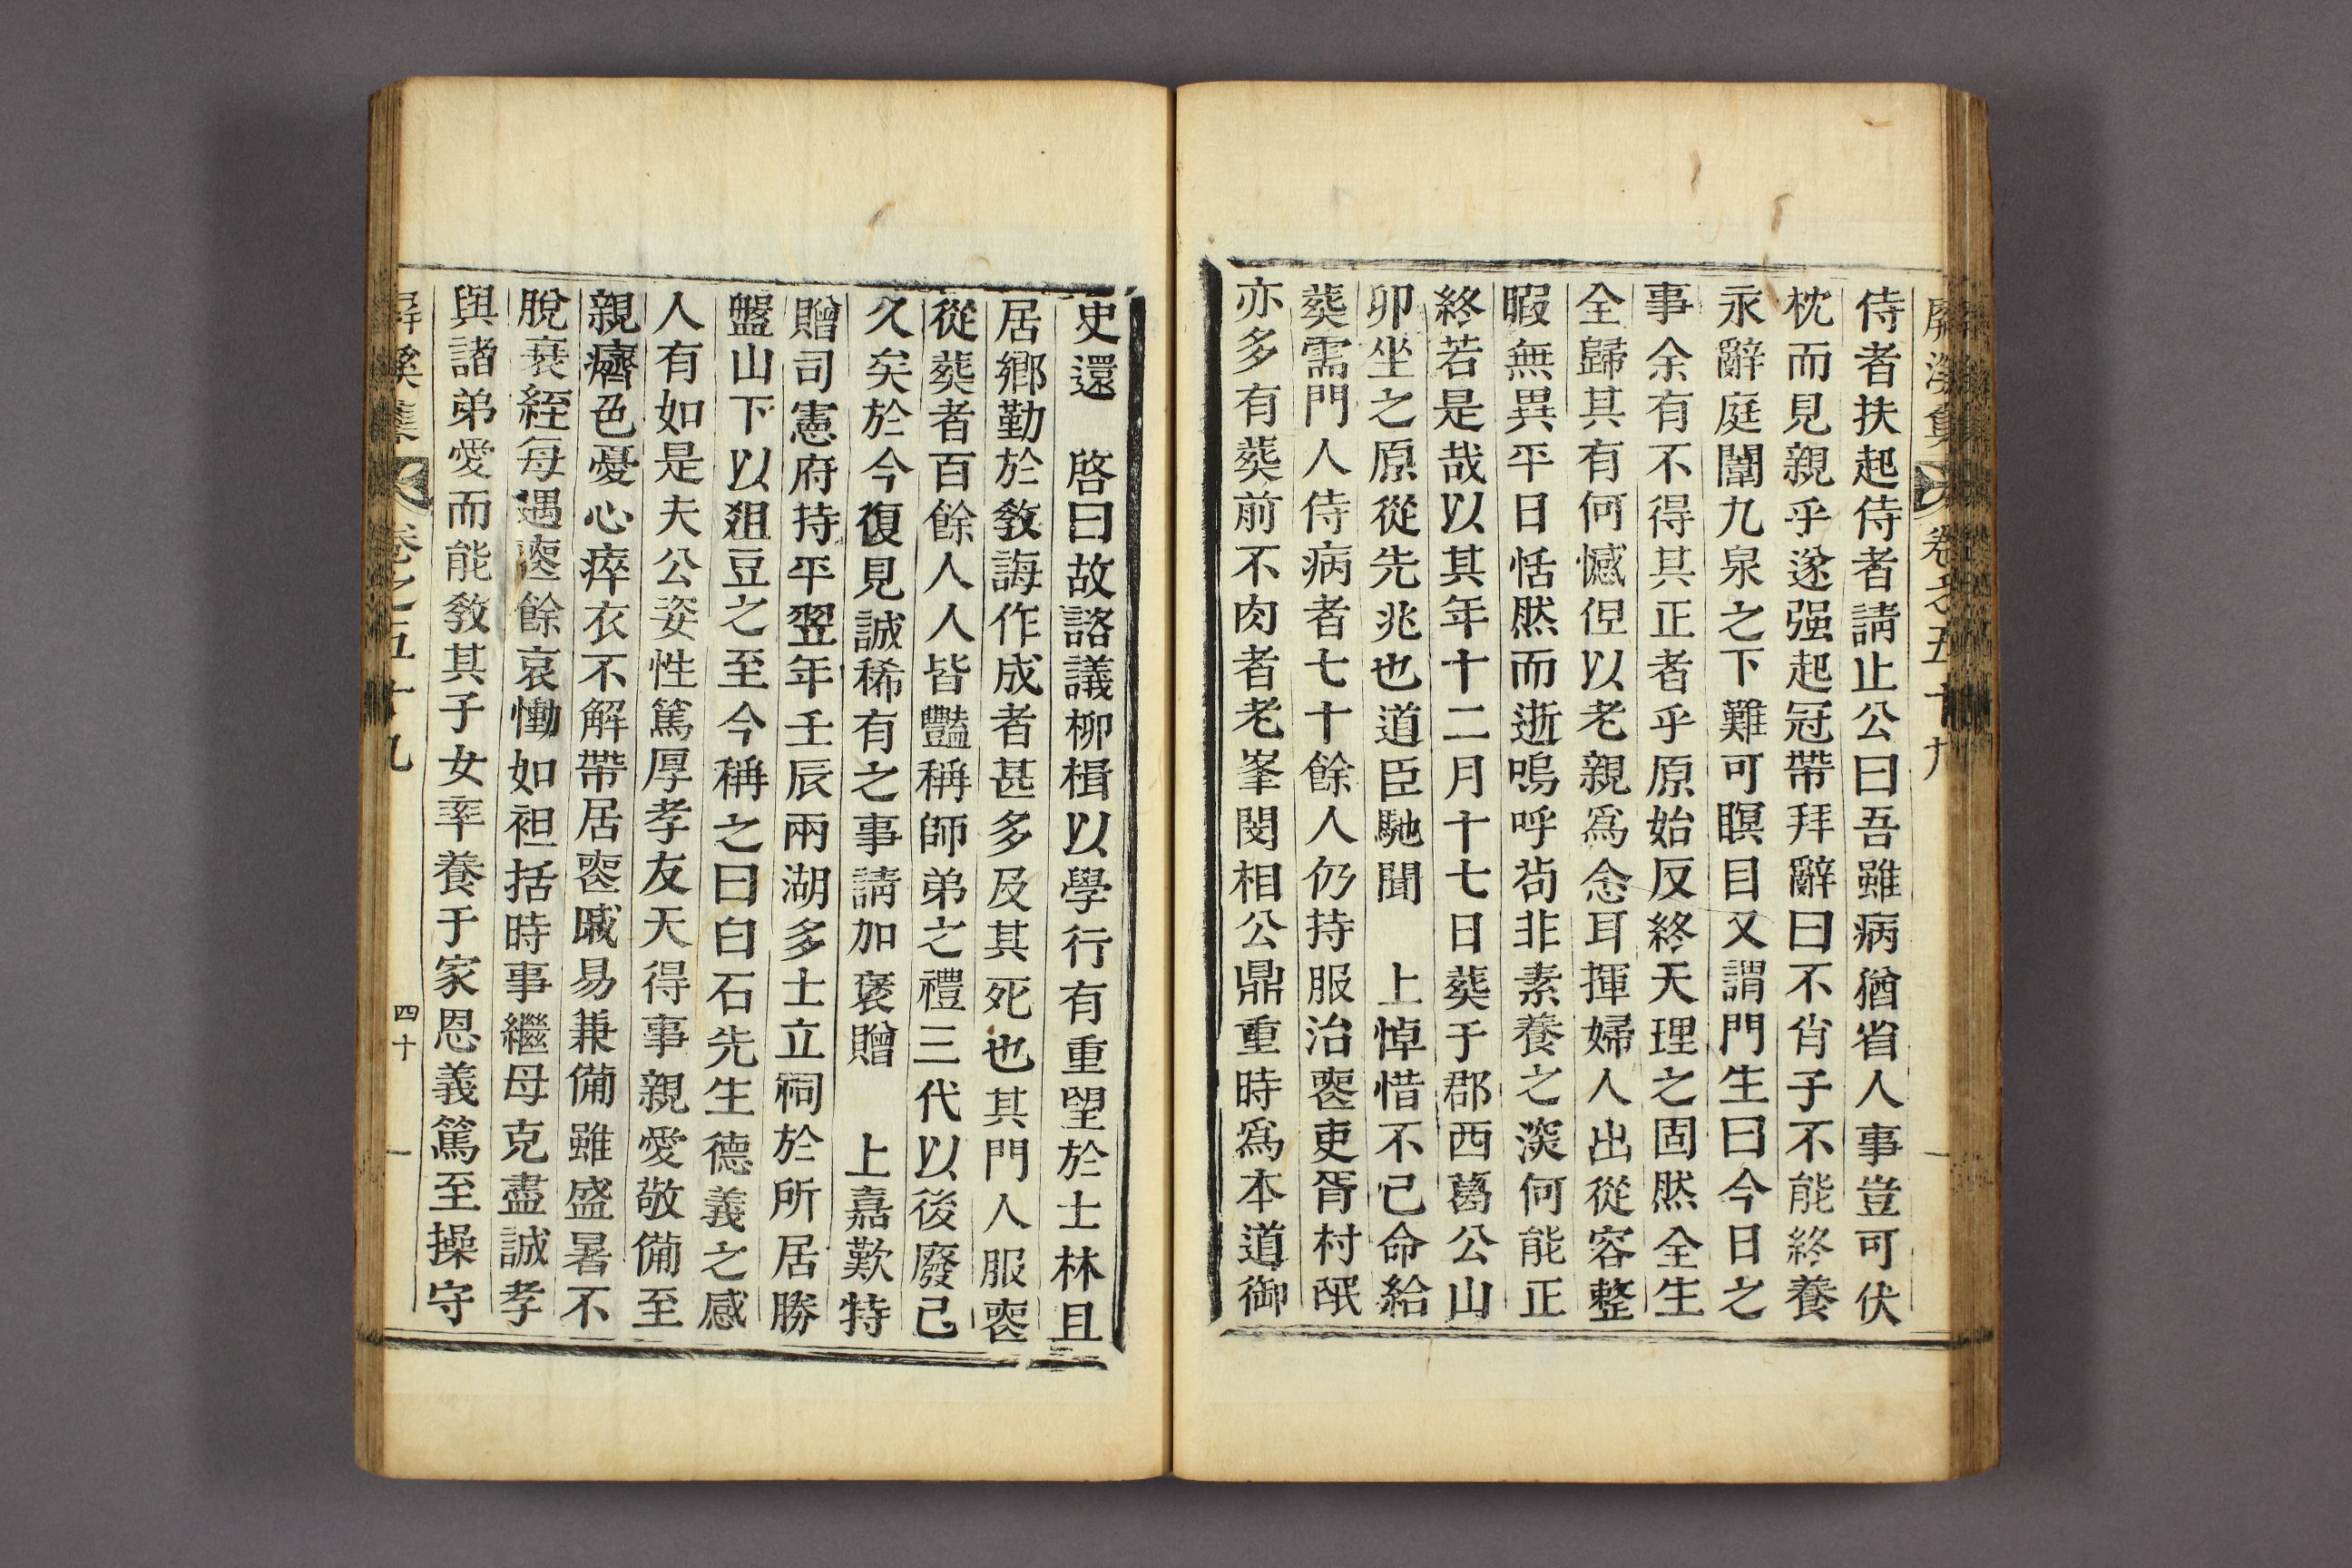 屛溪集 卷之五十九
侍者扶起侍者請止公曰吾雖病猶省人事豈可伏
枕而見親乎遂强起冠帶拜辭曰不肖子不能終養
永辭庭闈九泉之下難可瞑目又謂門生曰今日之
事余有不得其正者乎原始反終天理之固然全生
全歸其有何憾但以老親爲念耳揮婦人出從容整
暇無異平日恬然而逝嗚呼苟非素養之深何能正
終若是哉以其年十二月十七日葬于郡西葛公山
卯坐之原從先兆也道臣馳聞 上悼惜不已命給
葬需門人侍病者七十餘人仍持服治喪吏胥村氓
亦多有葬前不肉者老峯閔相公鼎重時爲本道御
史還 啓曰故諮議柳楫以學行有重望於士林且
居鄕勤於敎誨作成者甚多及其死也其門人服喪
從葬者百餘人人皆豔稱師弟之禮三代以後廢已
久矣於今復見誠稀有之事請加褒贈 上嘉歎特
贈司憲府持平翌年壬辰兩湖多士立祠於所居勝
盤山下以俎豆之至今稱之曰白石先生德義之感
人有如是夫公姿性篤厚孝友天得事親愛敬備至
親癠色憂心瘁衣不解帶居喪戚易兼備雖盛暑不
脫衰絰每遇喪餘哀慟如袒括時事繼母克盡誠孝
與諸弟愛而能敎其子女率養于家恩義篤至操守
屛溪集 卷之五十九 四十